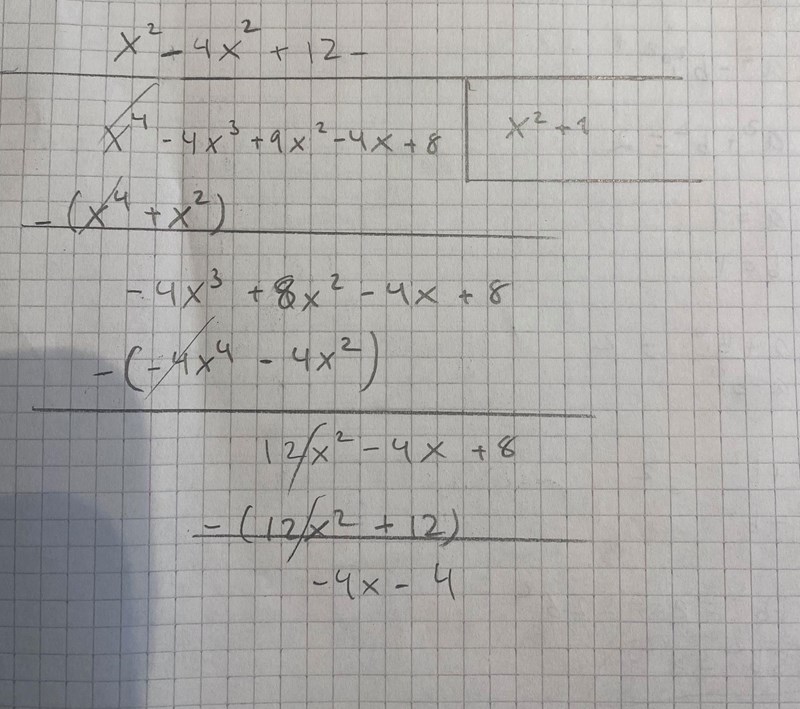 x² - 4x² + 12 -
x⁴ - 4x³ + 9x² - 4x + 8 x² + 1
- (x⁴ + x²)
- 4x³ + 8x² - 4x + 8
- (- 4x⁴ - 4x²)
12x² - 4x + 8
- (12x² + 12)
- 4x - 4